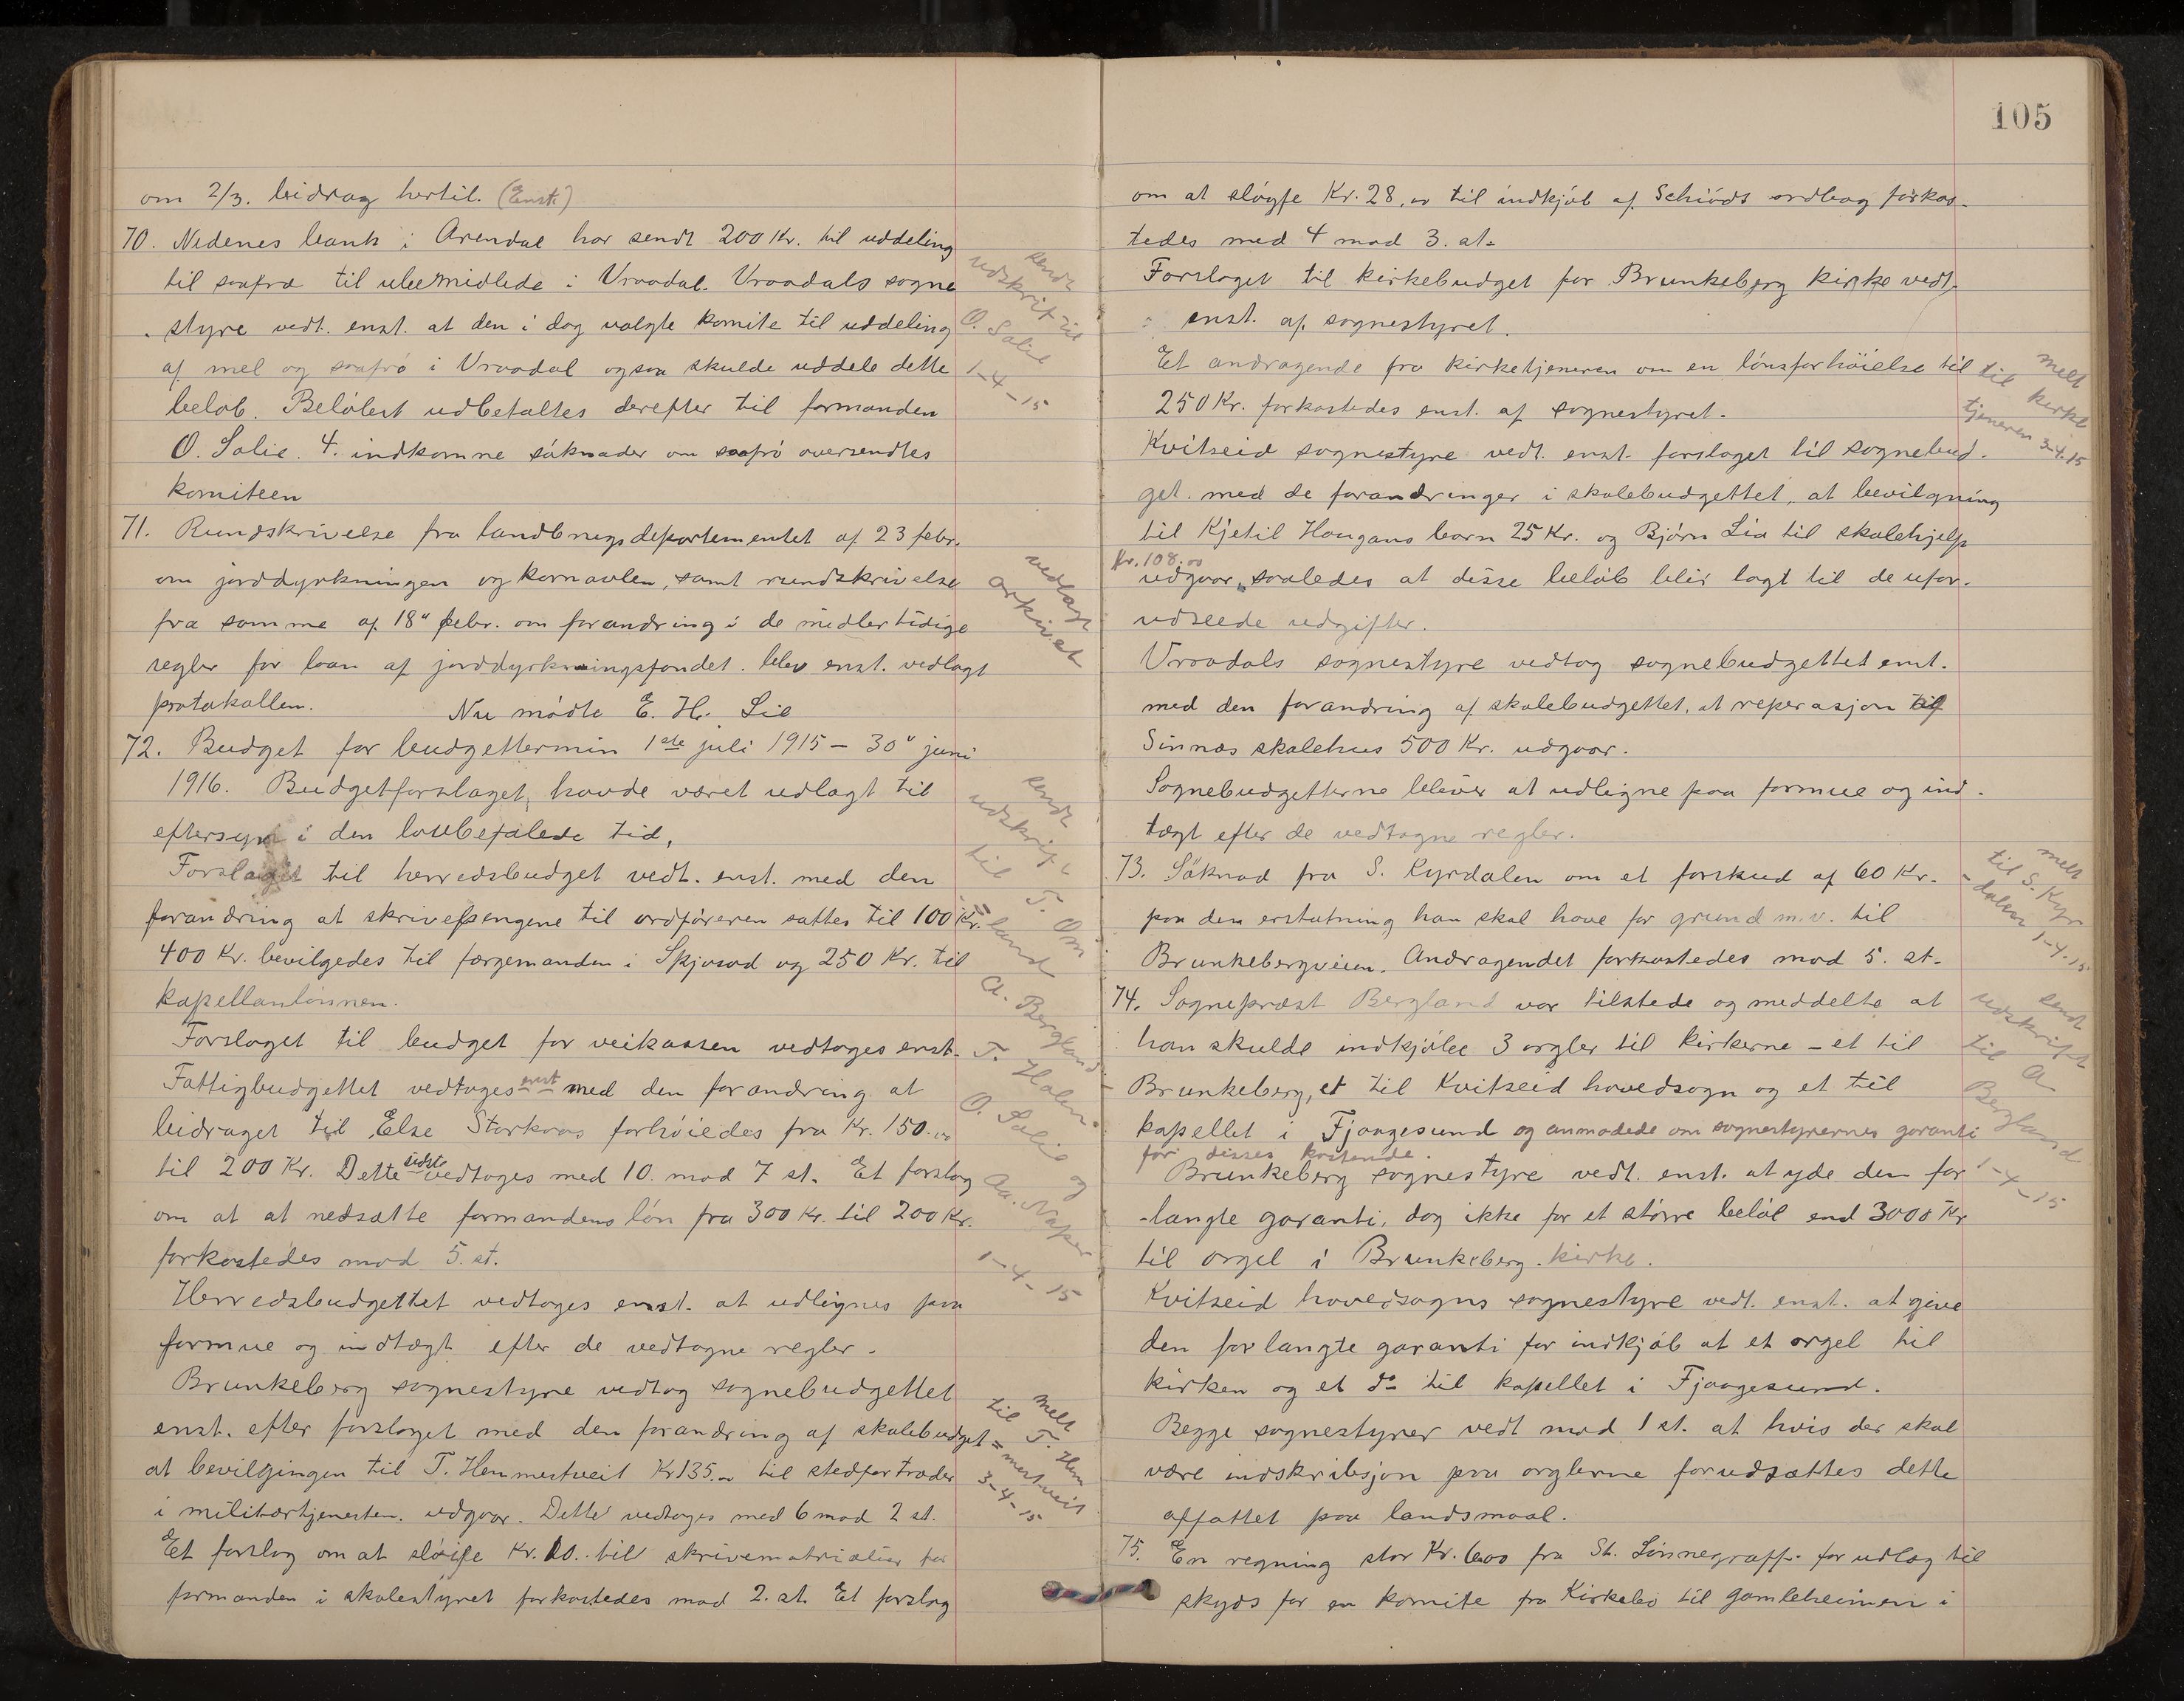 om 2/3. bidrag hertil. (Enst.)
70. Nedenes bank i Arendal har sendt 200 Kr. til uddeling
til saafrø til ubemidlede i Vraadal. Vraadals sogne
styre vedt. enst. at den i dag valgte komite til uddeling
af mel og saafrø i Vraadal ogsaa skulde uddele dette
beløb. Beløbet udbetaltes derefter til formanden
O. Salie. 4. indkomne søknader om saafrø oversendtes
komiteen
sendt
udskrift til
O. Salie
1-4-15
71. Rundskrivelse fra landbrugsdepartementet af 23 febr.
om jorddyrkningen og kornavlen, samt rundskrivelse
fra samme af 18" febr. om forandring i de midlertidige
regler for laan af jorddyrkningsfondet. blev enst. vedlagt
protokollen. Nu mødte E. H. Lie
vedlagt
arkivet
72. Budget for budgettermin 1ste juli 1915 - 30" juni
1916. Budgetforslaget, havde været udlagt til
eftersyn i den lovbefalede tid,
Forslaget til herredsbudget vedt. enst. med den
forandring at skrivepengene til ordføreren sattes til 100 Kr.
400 Kr. bevilgedes til færgemanden i Skjosod og 250 Kr. til
kapellanlønnen.
Forslaget til budget for veikassen vedtoges enst.
Fattigbudgettet vedtoges enst med den forandring at
bidraget til Else Storkaas forhøiedes fra Kr. 150.00
til 200 Kr. Dette sidste vedtoges med 10. mod 7 st. Et forslag
om at at nedsætte formandens løn fra 300 Kr. til 200 Kr.
forkastedes mod 5. st.
Herredsbudgettet vedtoges enst. at udlignes paa
formue og indtægt efter de vedtagne regler.
sendt
udskrift
til T. Om
=land
A. Bergland
T. Halen
O. Salie og
Aa. Naper
1-4-15
Brunkeberg sognestyre vedtog sognebudgettet
enst. efter forslaget med den forandring af skolebudget=
at bevilgingen til T. Hemmestveit Kr 135.00 til stedfortræder
i militærtjenesten. udgaar. Dette vedtoges med 6 mod 2 st.
Et forslag om at sløife Kr. 10. til skrivematrialier for
formanden i skolestyret forkastedes mod 2. st. Et forslag
melt
til T. Hem
=mestveit
3-4-15
105
om at sløyfe Kr. 28,00 til indkjøb af Schiøds ordbog forkas-
tedes med 4 mod 3. st.
Forslaget til kirkebudget for Brunkeberg kirke vedt.
enst. af sognestyret.
Et andragende fra kirketjeneren om en lønsforhøielse til
250 Kr. forkastedes enst. af sognestyret.
melt
til kirke
tjeneren 3-4.15
Kvitseid sognestyre vedt. enst. forslaget til sognebud-
get. med de forandringer i skolebudgettet, at bevilgning
til Kjetil Haugans barn 25 Kr. og Bjørn Lia til skolehjelp
Kr. 108.00
udgaar, saaledes at disse beløb blir lagt til de ufor-
udseede udgifter.
Vraadals sognestyre vedtog sognebudgettet enst.
med den forandring af skolebudgettet, at reperasjon til
Sinnas skolehus 500 Kr. udgaar.
Sognebudgetterne bliver at udligne paa formue og ind-
tægt efter de vedtagne regler.
73. Søknad fra S. Kyrdalen om et forskud af 60 Kr.
paa den erstatning han skal have for grund m.v. til
Brunkebergveien. Andragendet forkastedes mod 5. st.
melt
til S. Kyr
-dalen 1-4-15
74. Sogneprest Bergland var tilstede og meddelte at
han skulde indkjøbe 3 orgler til kirkerne - et til
Brunkeberg, et til Kvitseid hovedsogn og et til
kapellet i Fjaagesund og anmodede om sognestyrernes garanti
for disses kostende.
Brunkeberg sognestyre vedt. enst. at yde den for
-langte garanti, dog ikke for et større beløb end 3000 Kr
til orgel i Brunkeberg. kirke.
sendt
udskrift
til A
Bergland
1-4-15
Kvitseid hovedsogns sognestyre vedt. enst. at give
den forlangte garanti for indkjøb at et orgel til
kirken og et do til kapellet i Fjaagesund.
Begge sognestyrer vedt mod 1 st. at hvis der skal
være indskribsjon paa orglerne forudsættes dette
affattet paa landsmaal.
75. En regning stor Kr. 6.00 fra St. Lønnegraff for udlæg til
skyds for en komite fra Kirkebø til gamleheimen i